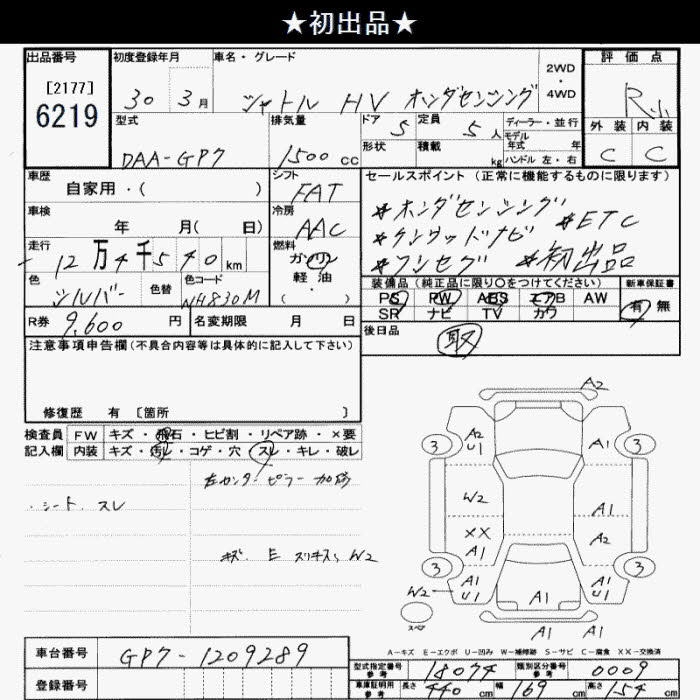 ★初出品★
出品番号
[2177]
6219
初度登録年月
30 3月
車名・グレード
シャトル HV ホンダセンシング
2WD
・
4WD
評価点
R小
外装 内装
C C
型式
DAA-GP7
排気量
1500 cc
ドア 5
定員 5 人
ディーラー・並行
モデル
年式 年
形状
積載 kg
ハンドル 左・右
車歴
自家用・( )
シフト
FAT
セールスポイント(正常に機能するものに限ります)
*ホンダセンシング *ETC
*ケンウッドナビ *初出品
*フルセグ
車検
年 月( 日)
冷房
AAC
走行
12万4千540 km
燃料
ガソリン
軽・油
・
( )
色
シルバー
色替
色コード
NH830M
装備品(純正品に限り○をつけてください)
PS PW ABS エアB AW
SR ナビ TV カワ
新車保証書
有 無
R券 9,600 円
名変期限 月 日
後日品
取
注意事項申告欄(不具合内容等は具体的に記入して下さい)
修復歴 有 〔箇所 〕
検査員
記入欄
FW キズ・飛石・ヒビ割・リペア跡・×要
内装 キズ・汚レ・コゲ・穴・スレ・キレ・破レ
左センターピラー加修
・シート、スレ
キズ、E スリキズ、W2
A2
3
A2
U1
A1
3
W2
A1
XX
A1
A2
3
A1
U1
A1
U1
3
W2
A1
スペア
A1 A1
A―キズ E―エクボ U―凹み W―補修跡 S―サビ C―腐食 XX―交換済
車台番号 GP7-1209289
登録番号
型式指定番号
参考
18074
類別区分番号
参考
0009
車庫証明用
参考
長さ 440 cm
幅 169 cm
高さ 154 cm